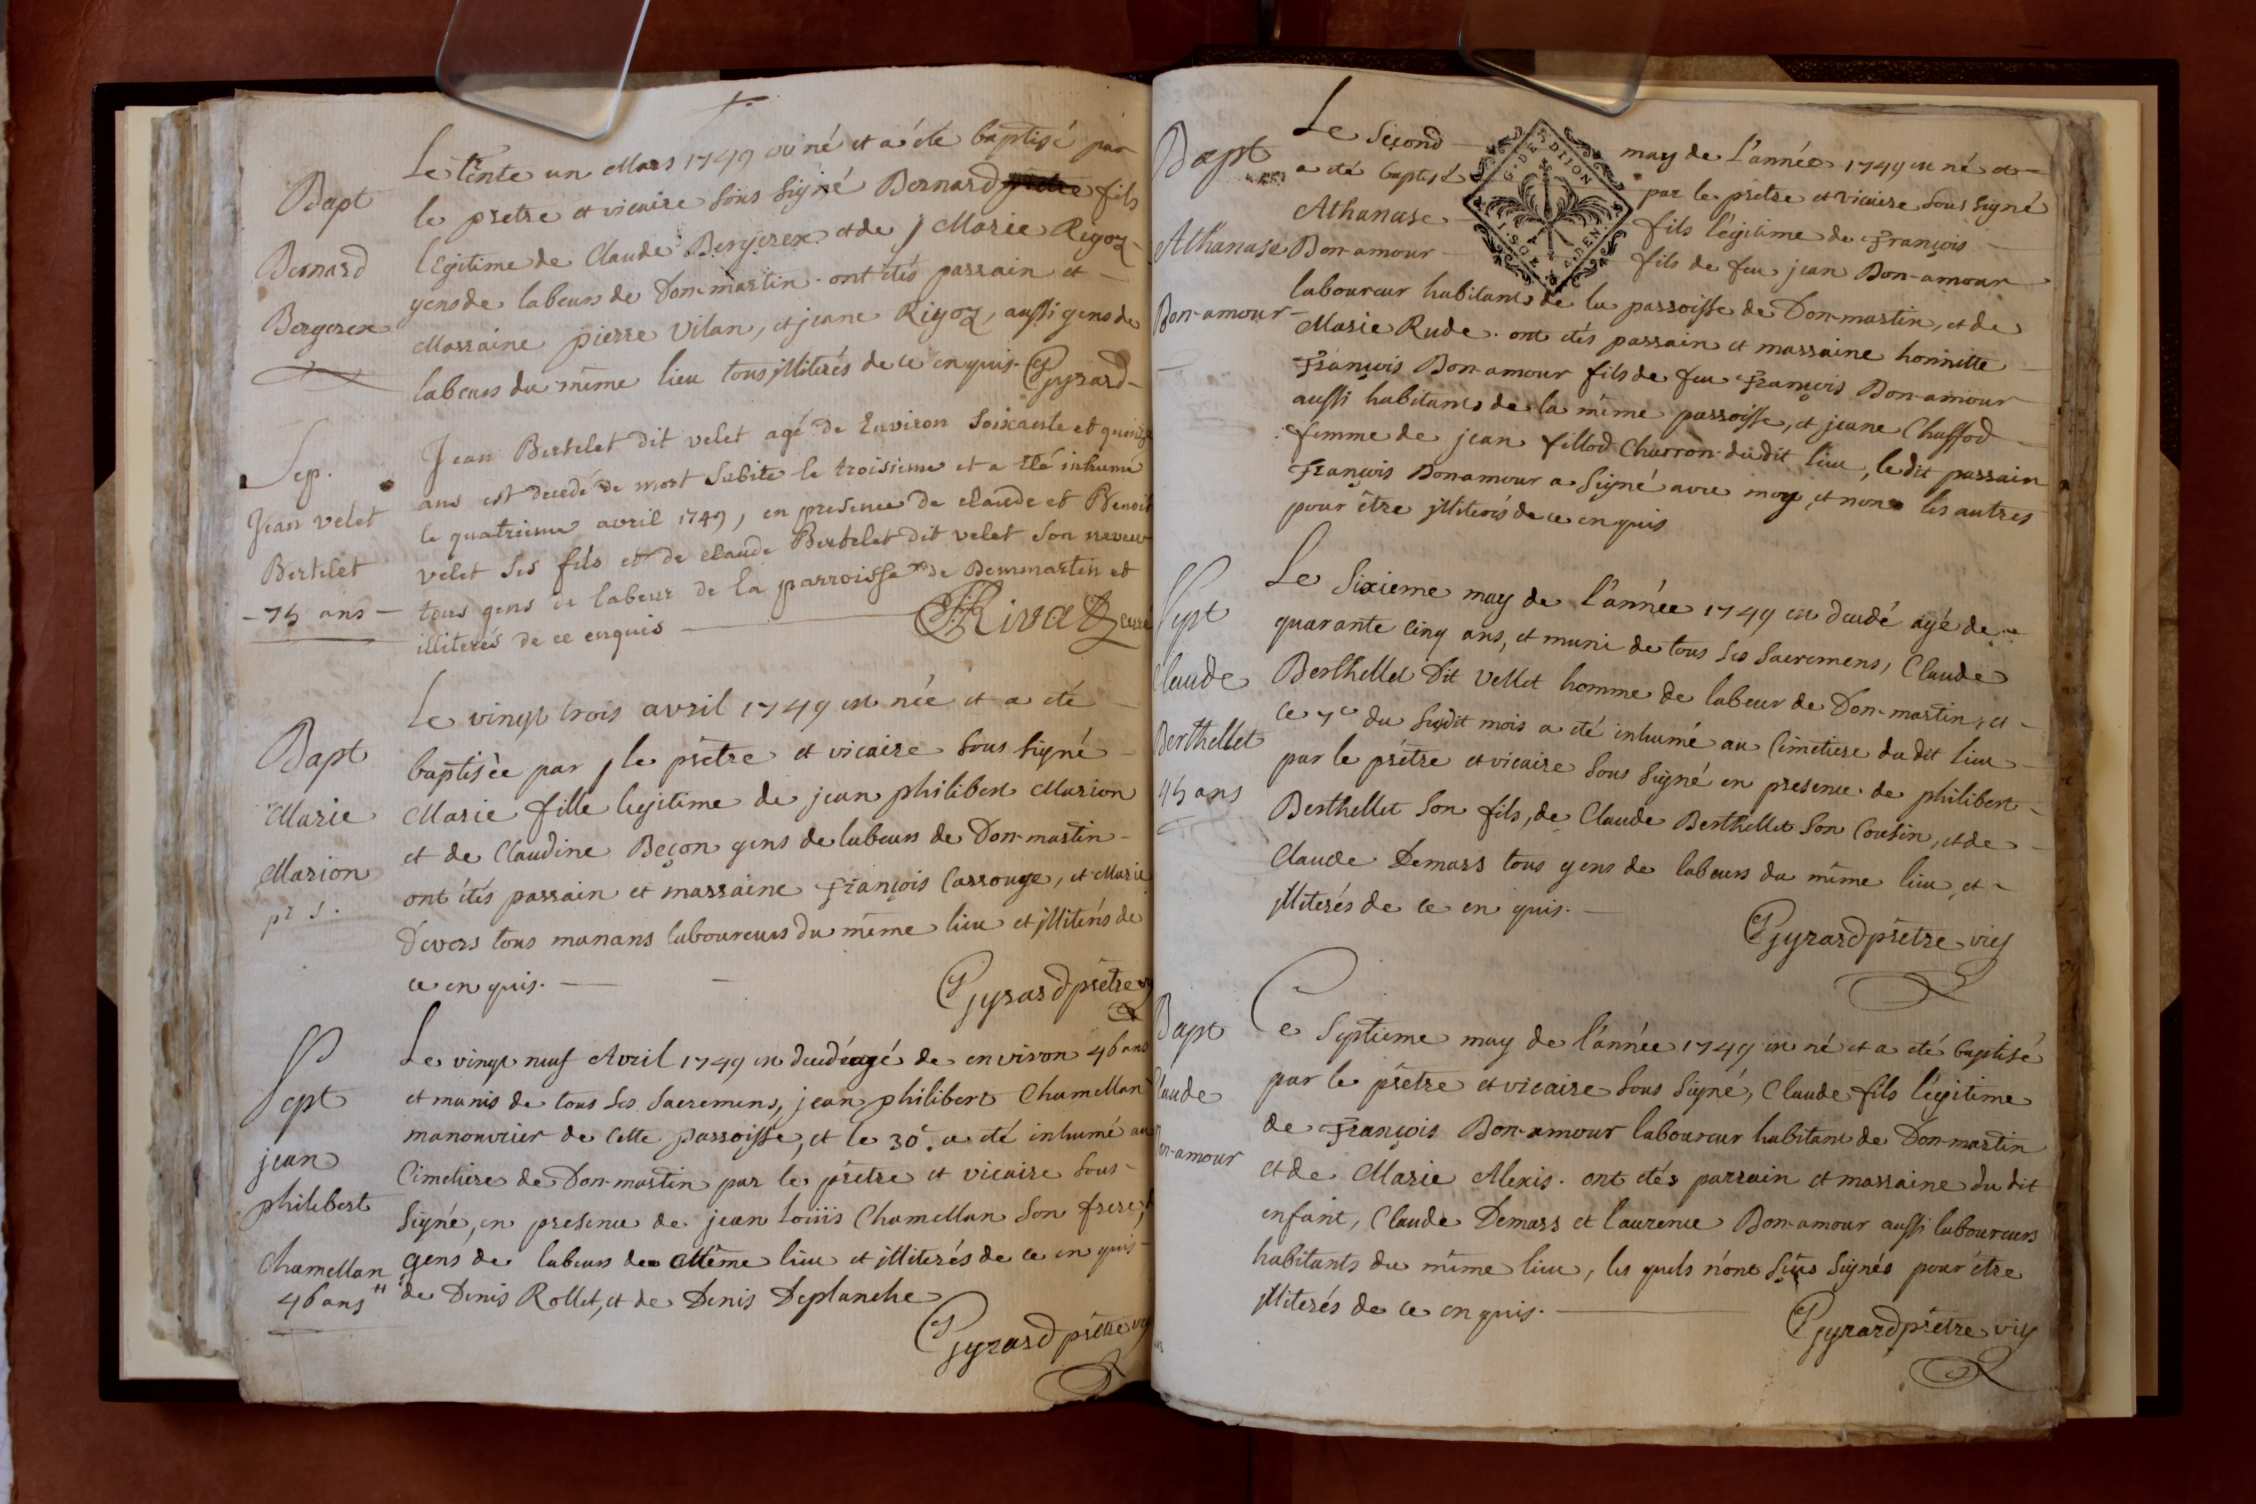 Bapt
Bernard
Bergerex
Le trente un Mars 1749 est né et a été baptisé par
le pretre et vicaire sous signé Bernard fils
légitime de Claude Bergerex et de Marie Rigoz
gens de labeurs de Don-martin. ont étés parrain et
Marraine pierre Vilan, et jeane Rigoz, aussi gens de
labeurs du même lieu tous illiterés de ce enquis. Gyrard
Sep.
Jean velet
Bertelet
- 75 ans -
Jean Bertelet dit velet agé de Environ Soixante et quinze
ans est decedé de mort Subite le troisieme et a Eté inhumé
le quatrieme avril 1749, en presence de claude et Benoit
velet Ses fils et de claude Bertelet dit velet son neveu
tous gens de labeur de la parroisse de Dommartin et
illiterés de ce enquis
Rivat curé
Bapt
Marie
Marion
Le vingt trois avril 1749 est née et a été
baptisèe par le prêtre et vicaire sous signé
Marie fille legitime de jean philibert Marion
et de Claudine Beçon gens de labeurs de Don-martin
ont étés parrain et marraine François Carrouge, et Marie
Devers tous manans laboureurs du même lieu et illiterés de
ce en quis.
Gyrard prêtre
Sept
jean
philibert
Chamellan
46 ans
Le vingt neuf Avril 1749 est decedé agé de environ 46 ans
et munis de tous ses Sacremens, jean philibert Chamellan
manouvrier de cette parroisse, et le 30e. a été inhumé au
Cimetiere de Don-martin par le prêtre et vicaire sous-
signé, en presence de jean Louis Chamellan son frere,
gens de labeurs de Même lieu et illiterés de ce en quis
de Denis Rollet, et de Denis Deplanche
Gyrard prêtre vic
Bapt
Athanase
Bon-amour
Le Second may de l'année 1749 est né et
a été baptisé par le prêtre et vicaire sous signé
Athanase fils légitime de François
Bon-amour fils de feu jean Bon-amour
G. DE DIJON
laboureur habitants de la parroisse de Don-martin, et de
Marie Rude. ont étés parrain et marraine honnette
François Bon-amour fils de feu François Bon-amour
aussi habitants de la même parroisse, et jeane Chaffod
femme de jean fillod Charron dudit lieu, le dit parrain
François Bon-amour a signé avec moy, et non les autres
pour être illiterés de ce en quis
Sept
Claude
Berthellet
45 ans
Le Sixieme may de l'année 1749 est decedé agé de
quarante cinq ans, et muni de tous ses Sacremens, Claude
Berthellet Dit Vellet homme de labeur de Don-martin, et
ce 7e du susdit mois a été inhumé au Cimetiere du dit lieu
par le prêtre et vicaire sous signé en presence de philibert
Berthellet son fils, de Claude Berthellet son Cousin, et de
Claude Demars tous gens de labeurs du même lieu, et
illiterés de ce en quis.
Gyrard prêtre vic
Bapt
Claude
Bon-amour
Ce Septieme may de l'année 1749 est né et a été baptisé
par le prêtre et vicaire sous signé, Claude fils légitime
de François Bon-amour laboureur habitant de Don-martin
et de Marie Alexis. ont étés parrain et marraine du dit
enfant, Claude Demars et laurence Bon-amour aussi laboureurs
habitants du même lieu, les quels n'ont signés pour être
illiterés de ce en quis.
Gyrard prêtre vic